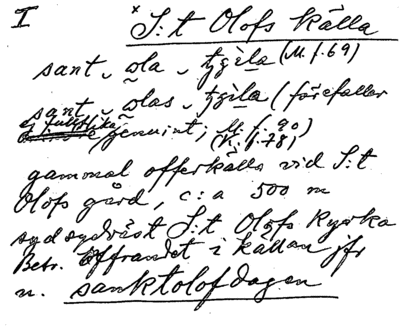 I × S:t Olofs källa
sant - ola - tjgèla (M. f. 69)
sant - olas - tjgèla (förefaller
ej fullt lika
genuint; M. f. 90)
(K. f. 78)
gammal offerkälla vid S:t
Olofs gård, c:a 500 m
sydsydväst S:t Olofs kyrka
Betr. offrandet i källan jfr
u. sanktolofdagen